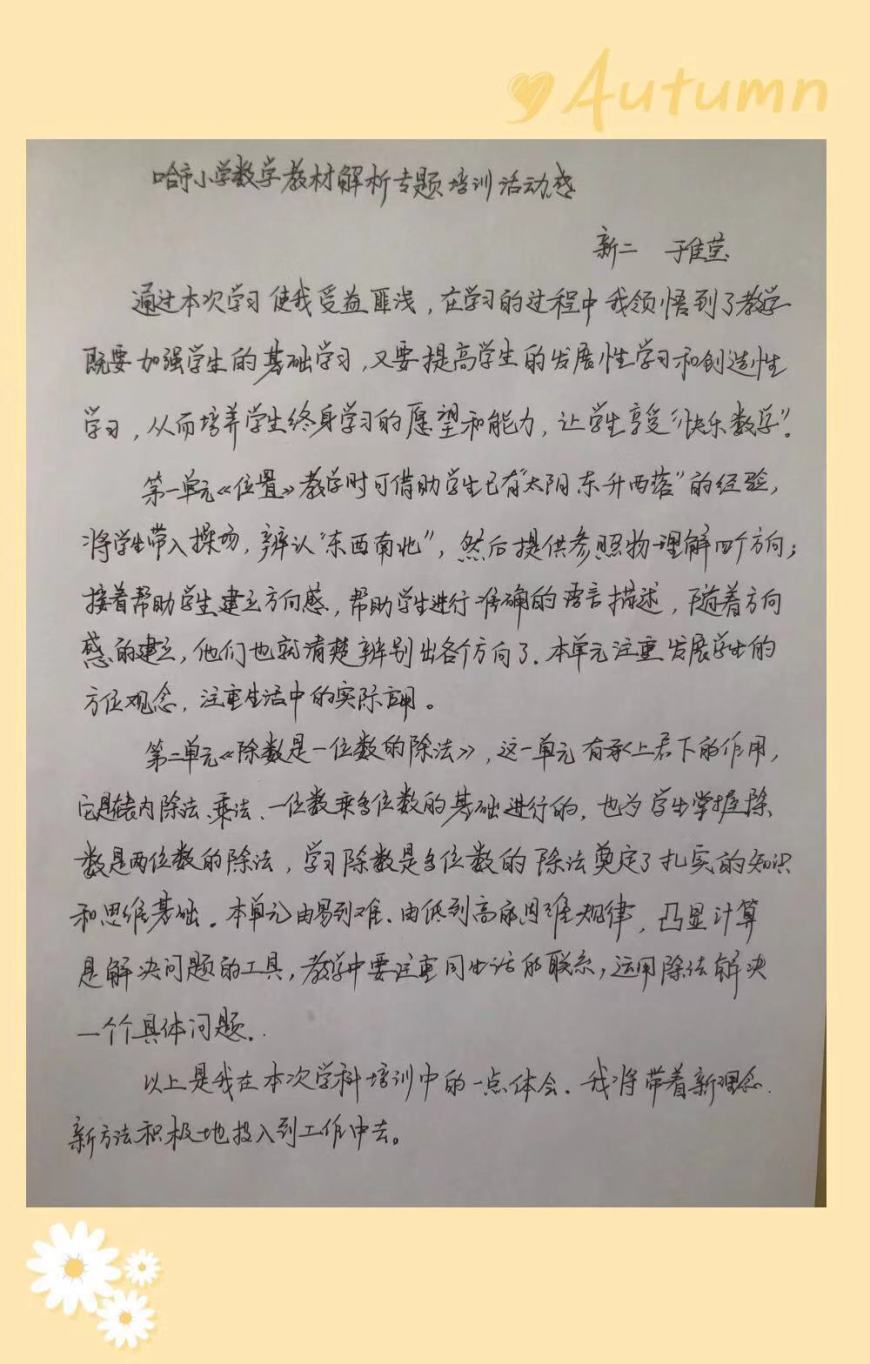 Autumn
哈市小学数学教材解析专题培训活动感
新二 于佳莹
通过本次学习使我受益匪浅，在学习的过程中我领悟到了教学
既要加强学生的基础学习，又要提高学生的发展性学习和创造性
学习，从而培养学生终身学习的愿望和能力，让学生享受“快乐数学”。
第一单元《位置》教学时可借助学生已有“太阳东升西落”的经验，
将学生带入操场，辨认“东西南北”，然后提供参照物理解四个方向；
接着帮助学生建立方向感，帮助学生进行准确的语言描述，随着方向
感的建立，他们也就清楚辨别出各个方向了。本单元注重发展学生的
方位观念，注重生活中的实际应用。
第二单元《除数是一位数的除法》，这一单元有承上启下的作用，
它是表内除法、乘法、一位数乘多位数的基础进行的，也为学生掌握除
数是两位数的除法，学习除数是多位数的除法奠定了扎实的知识
和思维基础。本单元由易到难、由低到高的思维规律，凸显计算
是解决问题的工具，教学中要注重同生活的联系，运用除法解决
一个个具体问题。
以上是我在本次学科培训中的一点体会。我将带着新理念
新方法积极地投入到工作中去。